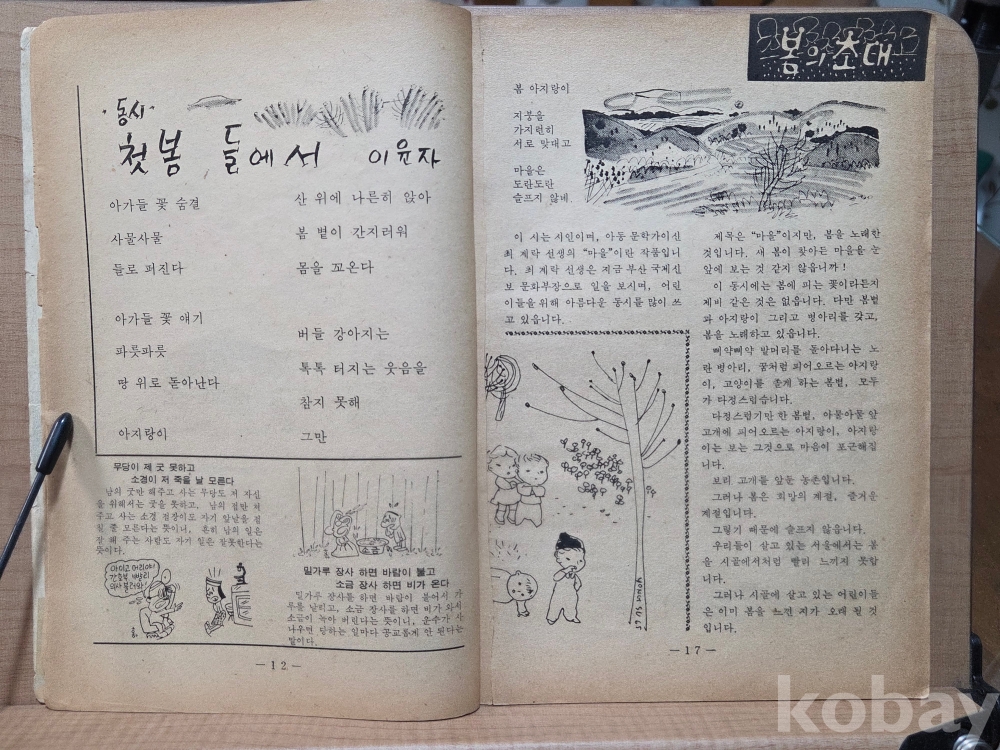 ·동시·
첫봄 들에서 이윤자
아가들 꽃 숨결
사물사물
들로 퍼진다
아가들 꽃 얘기
파룻파룻
땅 위로 돋아난다
아지랑이
산 위에 나른히 앉아
봄 볕이 간지러워
몸을 꼬온다
버들 강아지는
톡톡 터지는 웃음을
참지 못해
그만
무당이 제 굿 못하고
소경이 저 죽을 날 모른다
남의 굿만 해주고 사는 무당도 저 자신
을 위해서는 굿을 못하고, 남의 점만 쳐
주고 사는 소경 점장이도 자기 앞날을 점
칠 줄 모른다는 뜻이니, 흔히 남의 일은
잘 해 주는 사람도 자기 일은 잘못한다는
뜻이다.
아이고 머리야!
간호부 빨빨리
의사 불러와!
소금
밀가루 장사 하면 바람이 불고
소금 장사 하면 비가 온다
밀가루 장사를 하면 바람이 불어서 가
루를 날리고, 소금 장사를 하면 비가 와서
소금이 녹아 버린다는 뜻이니, 운수가 사
나우면 당하는 일마다 공교롭게 안 된다는
말이다.
—12—
봄의 초대
봄 아지랑이
지붕을
가지런히
서로 맞대고
마을은
도란도란
슬프지 않네.
이 시는 시인이며, 아동 문학가이신
최 계락 선생의 “마을”이란 작품입니
다. 최 계락 선생은 지금 부산 국제신
보 문화부장으로 일을 보시며, 어린
이들을 위해 아름다운 동시를 많이 쓰
고 있읍니다.
YONG SU
제목은 “마을”이지만, 봄을 노래한
것입니다. 새 봄이 찾아든 마을을 눈
앞에 보는 것 같지 않읍니까!
이 동시에는 봄에 피는 꽃이라든지
제비 같은 것은 없읍니다. 다만 봄볕
과 아지랑이 그리고 병아리를 갖고,
봄을 노래하고 있읍니다.
삐약삐약 발머리를 돌아다니는 노
란 병아리, 꿈처럼 피어오르는 아지랑
이, 고양이를 졸게 하는 봄볕, 모두
가 다정스럽습니다.
다정스럽기만 한 봄볕, 아물아물 앞
고개에 피어오르는 아지랑이, 아지랑
이는 보는 그것으로 마음이 포근해집
니다.
보리 고개를 앞둔 농촌입니다.
그러나 봄은 희망의 계절, 즐거운
계절입니다.
그렇기 때문에 슬프지 않읍니다.
우리들이 살고 있는 서울에서는 봄
을 시골에서처럼 빨리 느끼지 못합
니다.
그러나 시골에 살고 있는 어린이들
은 이미 봄을 느낀 지가 오래 될 것
입니다.
—17—
kobay